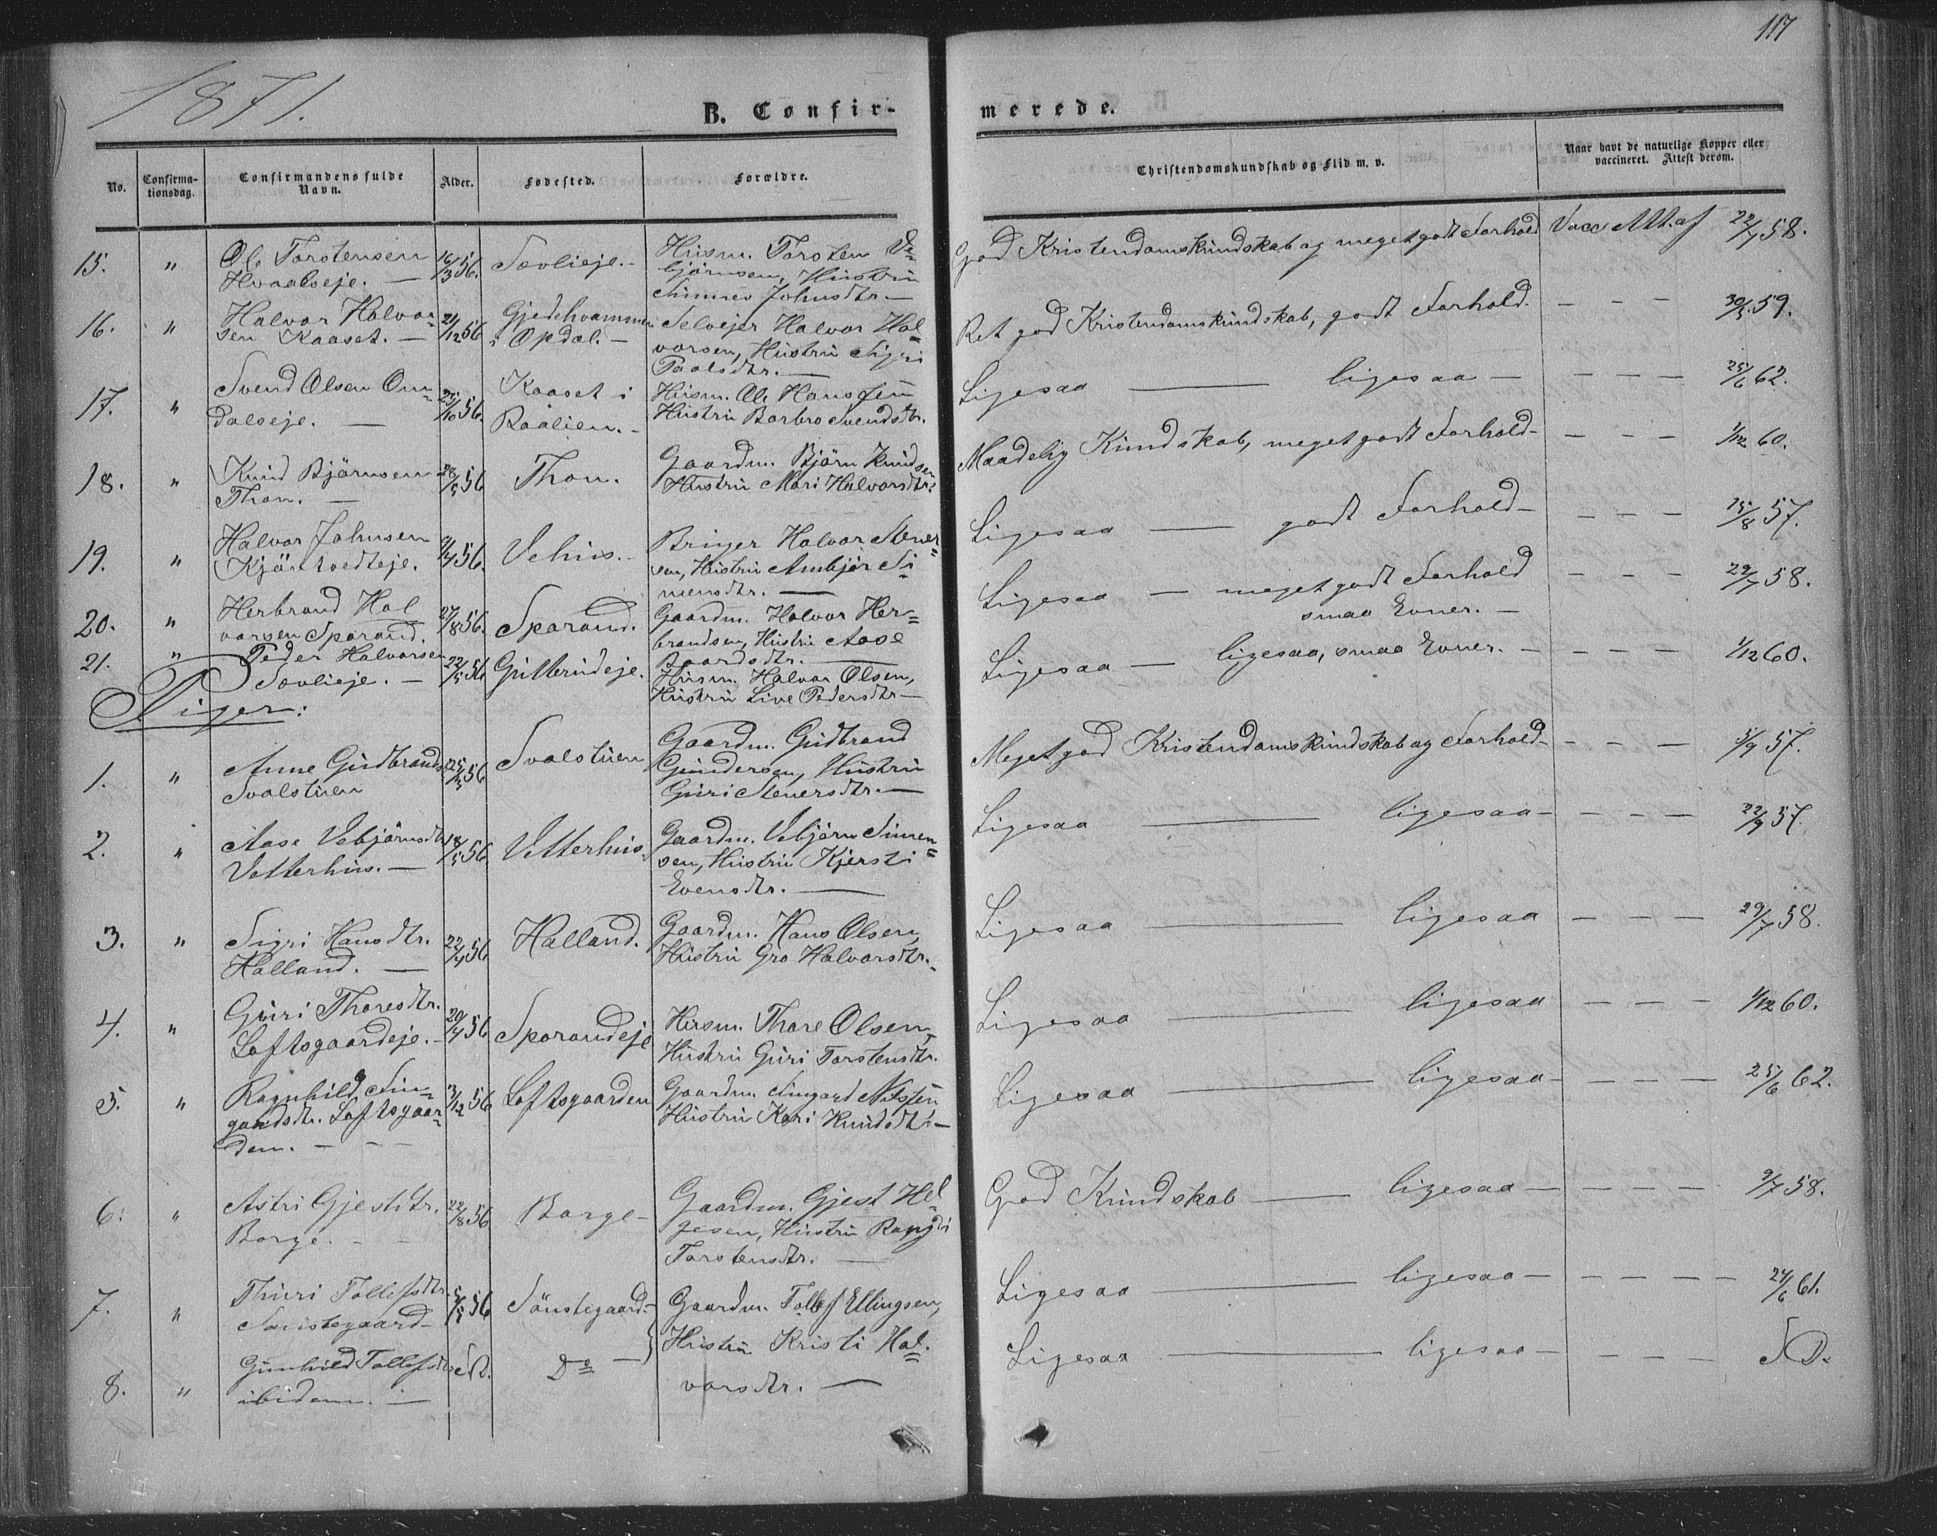 117
1871.
B. Confirmerede.
No. Confirmationsdag. Confirmandens fulde Navn. Alder. Fødested. Forældre. Christendomskundskab og Flid m. v. Naar havt de naturlige Kopper eller vaccineret. Attest derom.
15. " Ole Torstensen Hvaalseje. — 16/3 56. Sevlieje. — Husm. Torsten Vebjørnsen, Hustru Simmev Johnsdtr. — God Kristendomskundskab og meget godt Forhold Vacc Att. af 22/7 58.
16. " Halvor Halvorsen Kaaset. — 21/12 56 Gjedehvammen i Opdal. — Selvejer Halvor Halvorsen, Hustru Sigri Paalsdtr. — Ret god Kristendomskundskab, godt Forhold. — — — 30/5 59.
17. " Svend Olsen Omdalseje. — 25/10 56. Kaaset i Raalien. — Husm. Ole Hansen Hustru Barbro Svendsdtr. Ligesaa — ligesaa — — — — 25/6 62.
18. " Knud Bjørnsen Thon. — 28/5 56 Thon. Gaardm. Bjørn Knudsen Hustru Mari Halvorsdtr. Maadelig Kundskab, meget godt Forhold — — — — 1/12 60.
19. " Halvor Johnsen Kjøntvedteje. 9/4 56. Vehus. — Bruger Halvor Stenersen, Hustru Ambjør Simensdtr. — Ligesaa — godt Forhold — — — — 15/8 57.
20. " Herbrand Halvorsen Sporand. 27/8 56. Sporand. Gaardm. Halvor Herbrandsen, Hustru Aase Baardsdtr. — Ligesaa — meget godt Forhold smaa Evner. — — — — 29/7 58.
21. " Peder Halvorsen Sevlieje. — 22/5 56 Gutterudeje. Husm. Halvor Olsen, Hustru Live Pedersdtr — Ligesaa — ligesaa, smaa Evner. — — — — 1/12 60.
Piger:
1. " Anne Gudbrandsd Svalstuen 25/5 56 Svalstuen Gaardm. Gudbrand Gundersen, Hustru Guri Stenersdtr. — Meget god Kristendomskundskab og Forhold — — — — 5/9 57.
2. " Aase Vebjørnsdtr Vetterhus. — 18/5 56 Vetterhus. Gaardm. Vebjørn Simensen, Hustru Kjersti Evensdtr. — Ligesaa — ligesaa — — — — 22/9 57.
3. " Sigri Hansdtr. Halland. — 22/4 56 Halland. Gaardm. Hans Olsen, Hustru Gro Halvorsdtr. Ligesaa — ligesaa — — — 29/7 58.
4. " Guri Thoresdtr. Loftsgaardeje. — 20/4 56 Sporandeje Husm. Thore Olsen, Hustru Guri Torstensdtr. Ligesaa — ligesaa — — — 1/12 60.
5. " Ragnhild Simgardsdtr. Loftsgaarden. — — — 3/12 56 Loftsgaarden Gaardm. Simgard Nilssen Hustru Kari Knudsdtr — Ligesaa — ligesaa — — — — 25/6 62.
6. " Astri Gjestdtr. Borge. — — 22/8 56 Borge — Gaardm. Gjest Helgesen, Hustru Rangdi Torstensdtr. — God Kundskab — ligesaa — — — — 9/7 58.
7. " Thuri Tollefsdtr Sønstegaard — 5/5 56 Sønstegaard — Gaardm. Tollef Ellingsen, Hustru Kristi Halvorsdtr. — Ligesaa — ligesaa — — — — 24/6 61.
8. " Gunhild Tollefsdtr ibidem. — SD. Do — Ligesaa — ligesaa — — — — SD.